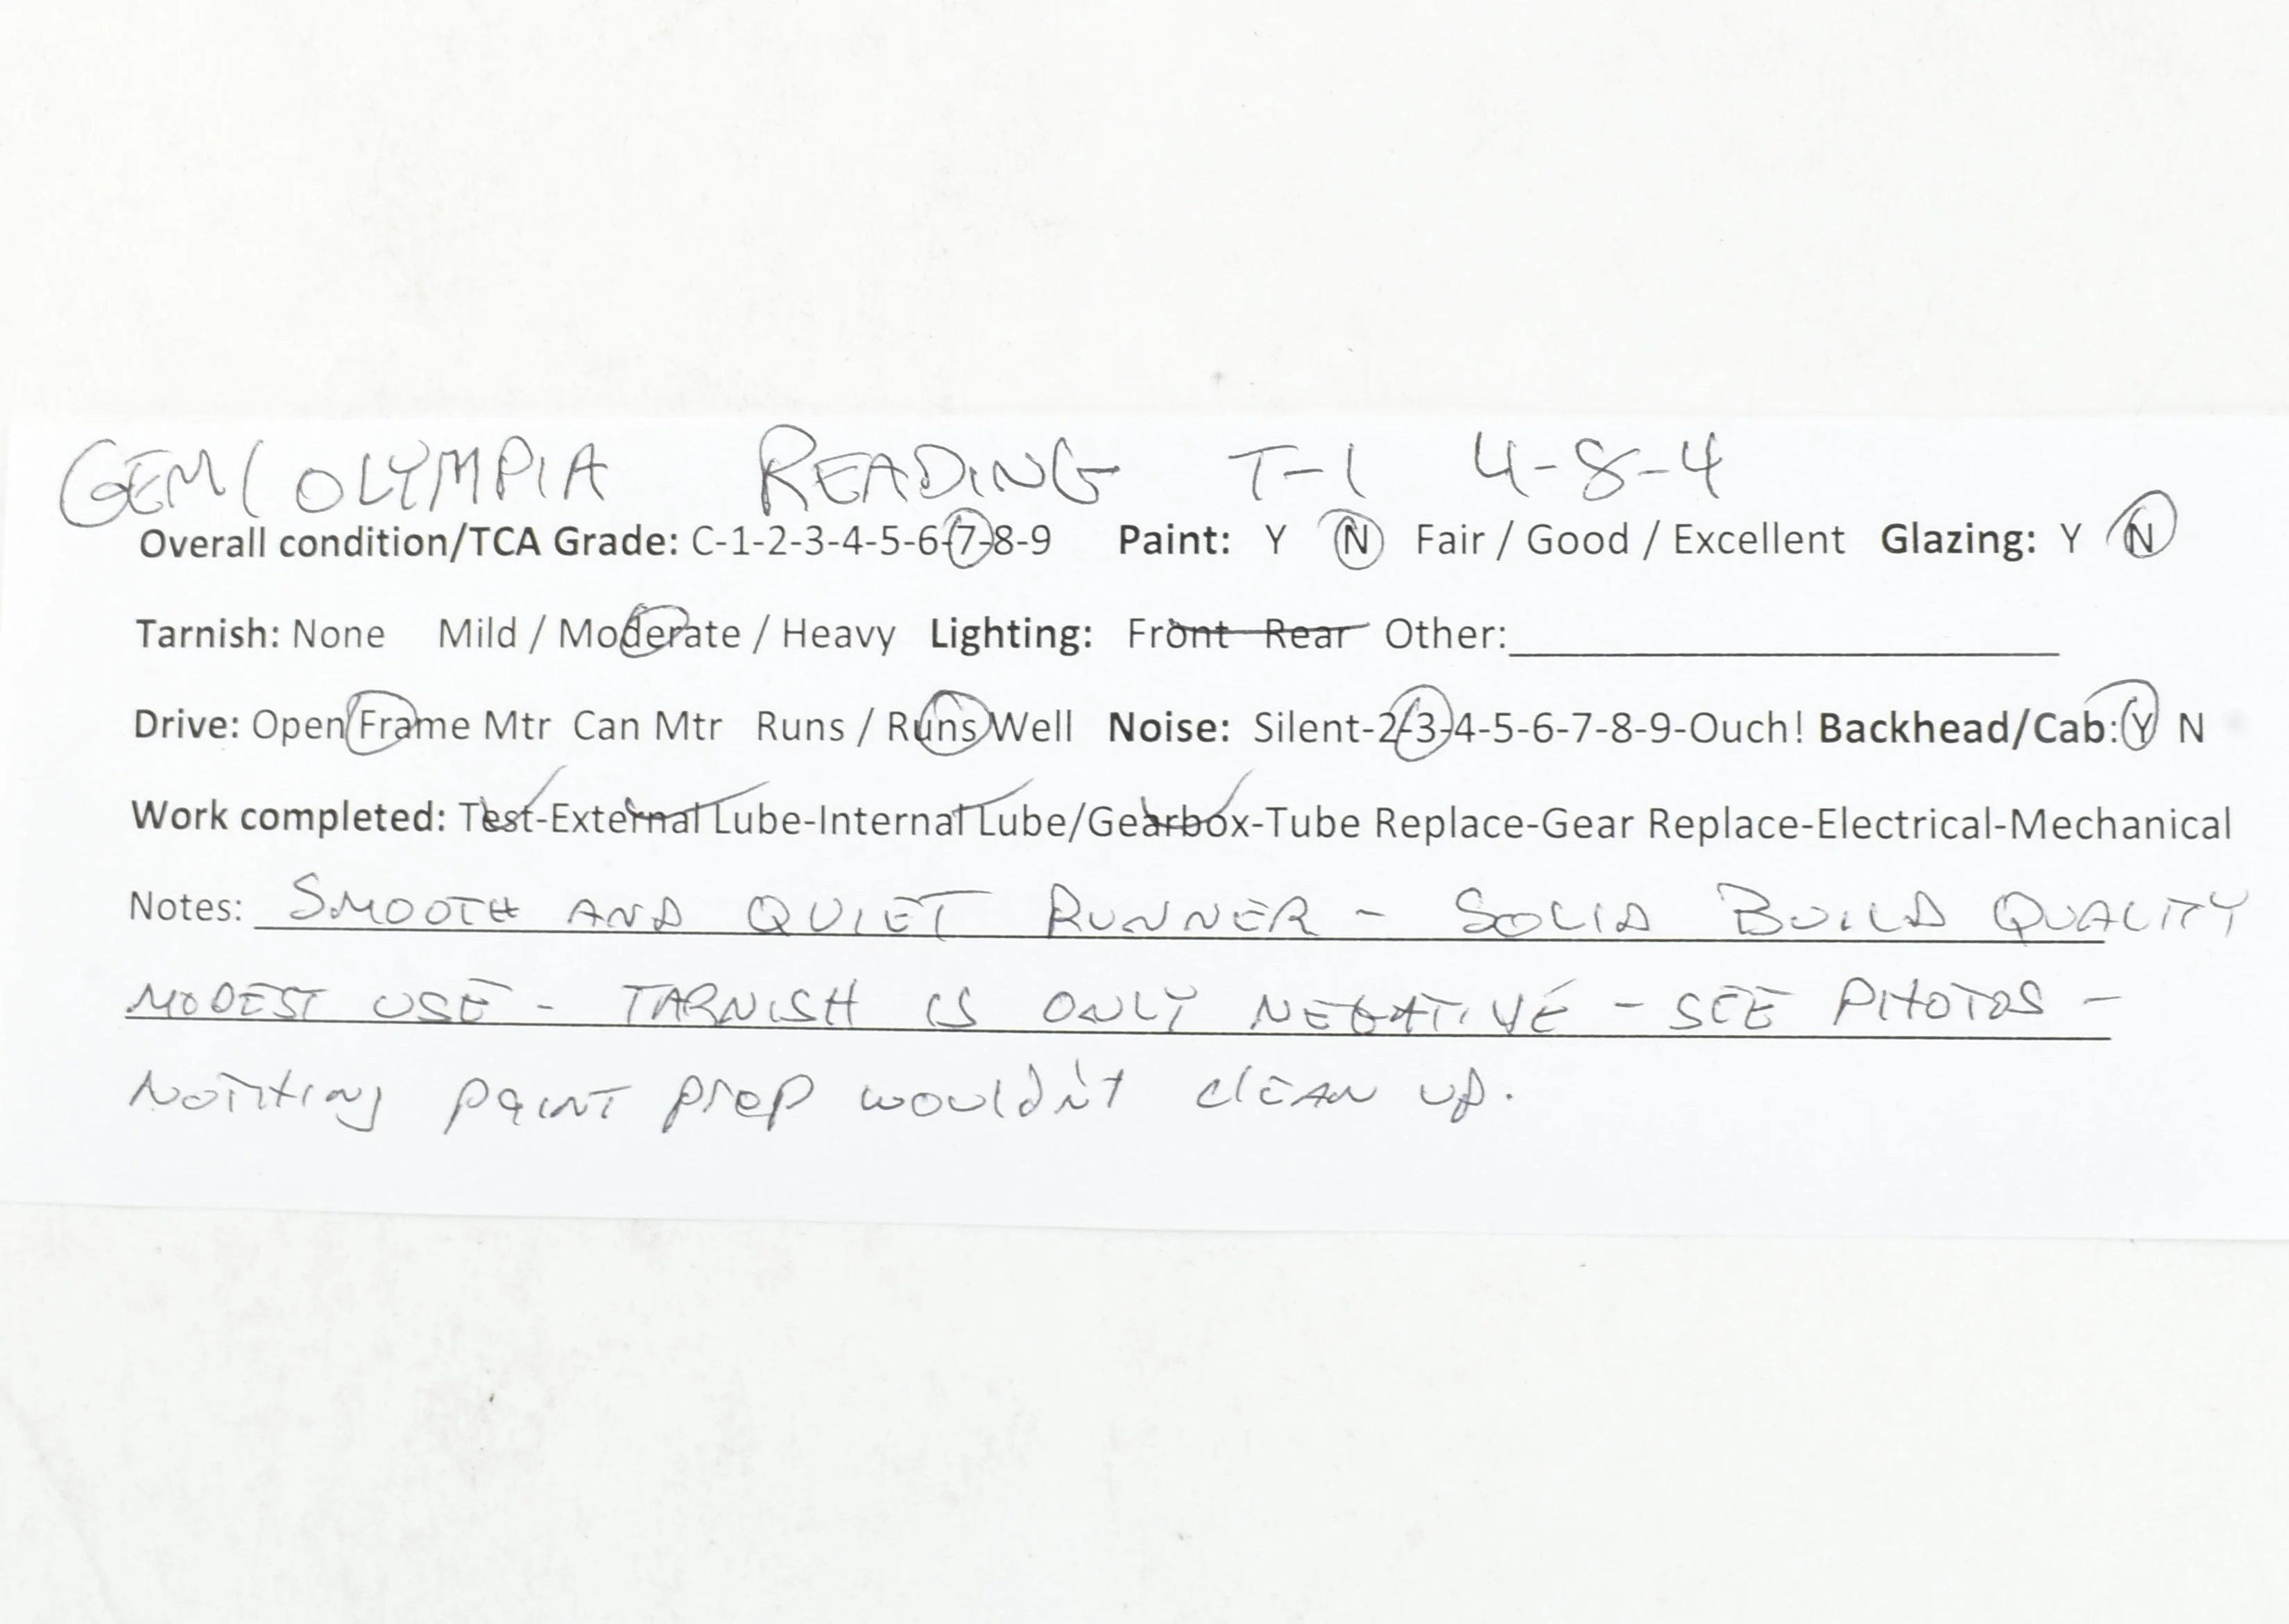 GEM/OLYMPIA READING T-1 4-8-4
Overall condition/TCA Grade: C-1-2-3-4-5-6-7-8-9 Paint: Y N Fair / Good / Excellent Glazing: Y N
Tarnish: None Mild / Moderate / Heavy Lighting: Front Rear Other:
Drive: Open Frame Mtr Can Mtr Runs / Runs Well Noise: Silent-2-3-4-5-6-7-8-9-Ouch! Backhead/Cab: Y N
Work completed: Test-External Lube-Internal Lube/Gearbox-Tube Replace-Gear Replace-Electrical-Mechanical
Notes: SMOOTH AND QUIET RUNNER - SOLID BUILD QUALITY
MODEST USE - TARNISH IS ONLY NEGATIVE - SEE PHOTOS -
NOTHING PAINT PREP WOULDN'T CLEAN UP.